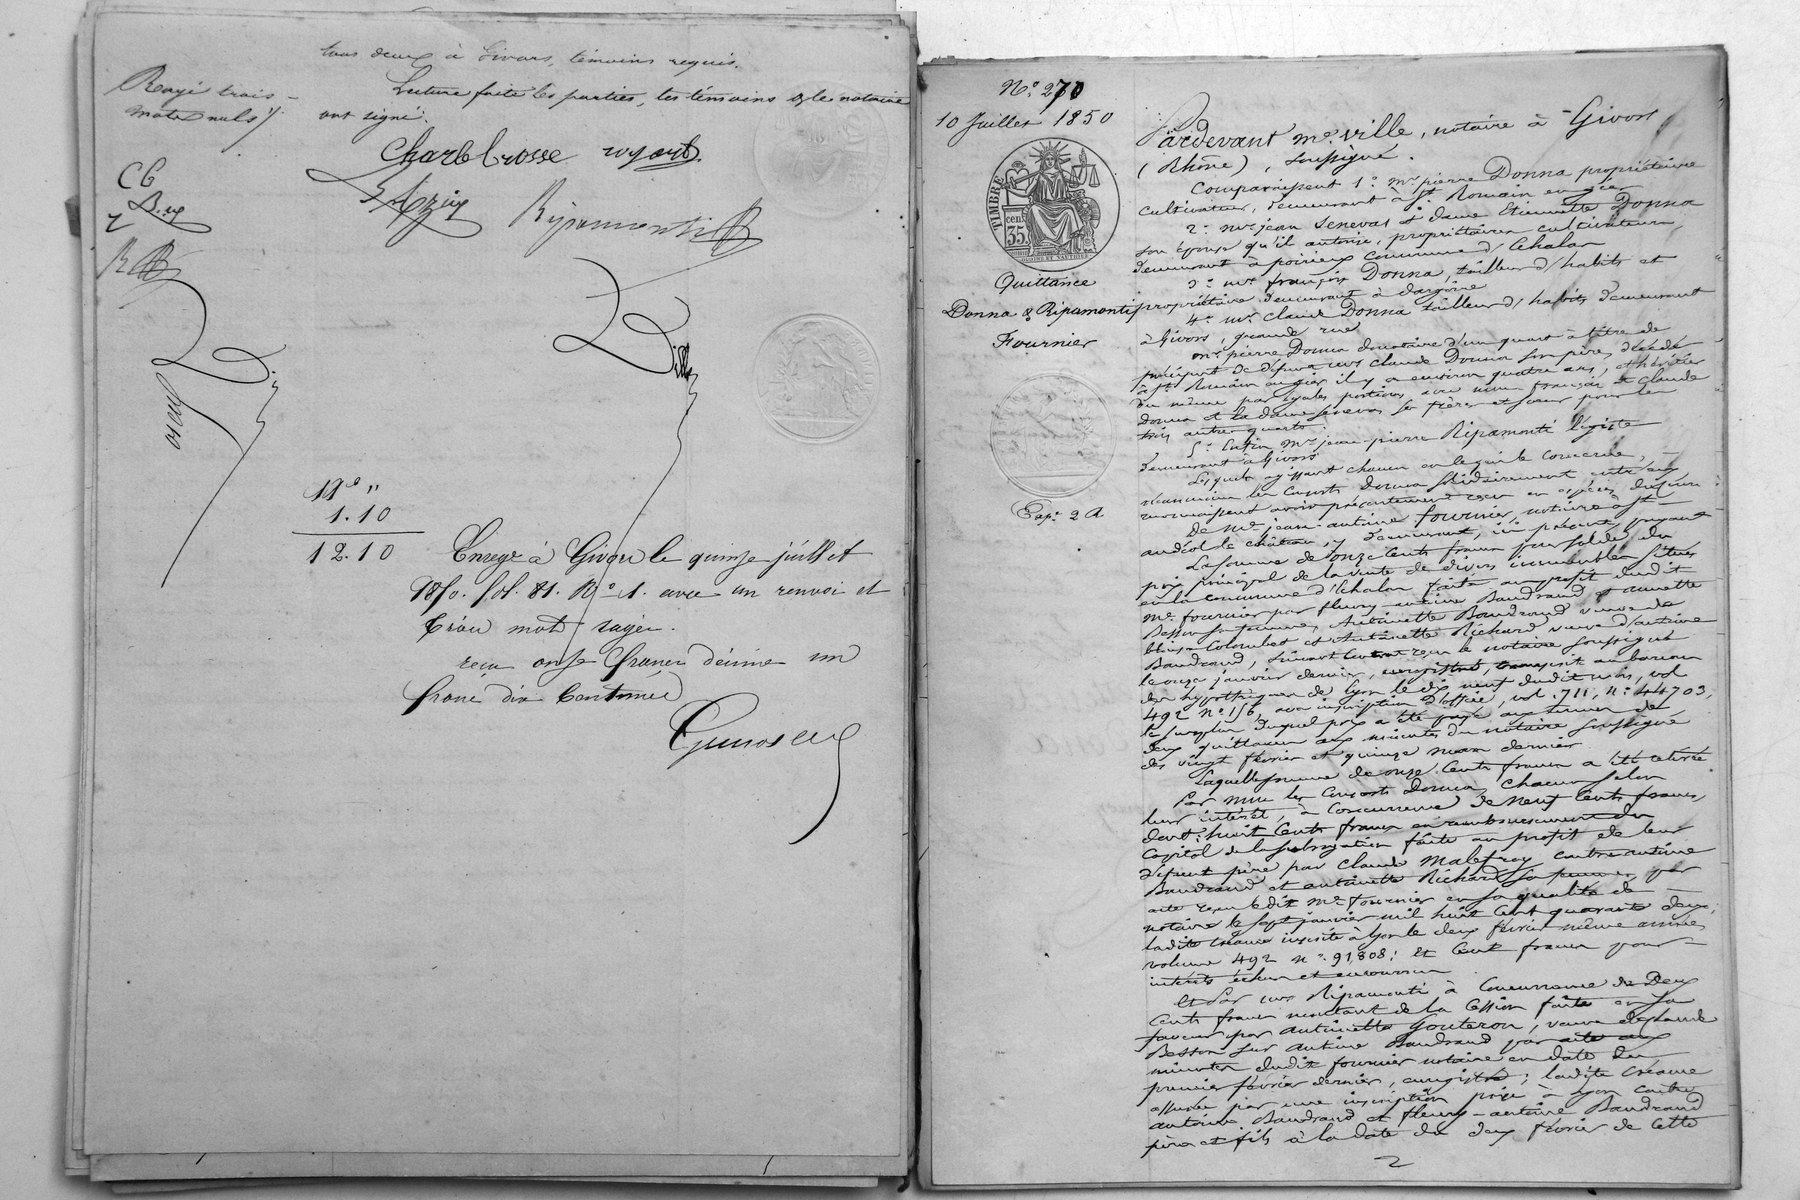 tous deux à Givors, témoins requis.
Lecture faite les parties, les témoins & le notaire
ont signé.
Rayé trois
mots nuls
Charle brosse
Ripamonti
CG
Ville
11 "
1.10
12.10
Enregé à Givors le quinze juillet
1850. fol. 81. Ro 1. avec un renvoi et
trois mots rayés.
reçu onze francs décime un
franc dix centimes
No 270
10 Juillet 1850
TIMBRE
cent
35.
Quittance
Donna & Ripamonti
Fournier
Exp. 2 R
Pardevant Me Ville, notaire à Givors
(Rhône), soussigné.
Comparaissent 1o Mr pierre Donna propriétaire
cultivateur, demeurant à St Romain en gier
2o Mr jean Senevas et dame Etiennette Donna
son épouse qu'il autorise, propriétaires cultivateurs,
demeurant à poirieux commune d'Echalas
3o Mr françois Donna, tailleur d'habits et
propriétaire demeurant à dargoire
4o Mr Claude Donna tailleur d'habits demeurant
à Givors, grande rue
Mr pierre Donna donataire d'un quart à titre de
préciput de défunt Mr Claude Donna son père, décédé
à St Romain en gier il y a environ quatre ans, et héritier
du même par égales portions avec mrs françois et Claude
Donna et la dame Senevas ses frères et soeur pour les
trois autres quarts.
5o Enfin Mr jean-pierre Ripamonti légiste
demeurant à Givors
Lesquels agissant chacun en ce qui le concerne,
néanmoins les consorts Donna solidairement entre eux,
reconnaissent avoir présentement reçu en espèces du cours
De Me jean-antoine fournier, notaire à St
andéol le château, y demeurant, ici présent, payant
La somme de onze cents francs pour solde du
prix principal de la vente de divers immeubles situés
en la commune d'Echalas faite au profit dudit
Me fournier par fleury-antoine Baudrand et annette
Besson sa femme, Antoinette Baudrand veuve de
Colombet et Antoinette Richard veuve d'antoine
Baudrand, suivant contrat reçu le notaire soussigné
le onze janvier dernier, enregistré, transcrit au bureau
des hypothèques de Lyon le dix neuf dudit mois, vol
492 No 156, avec inscription d'office, vol. 711, No 44703,
le surplus duquel prix a été payé au terme de
deux quittances aux minutes du notaire soussigné
des vingt février et quinze mars dernier
Laquelle somme de onze cents francs a été retirée
Par mrs les consorts Donna, chacun selon
leur intérêt, à concurrence de neuf cents francs,
dont: huit cents francs en remboursement du
capital de la subrogation faite au profit de leur
défunt père par Claude Malefroy contre antoine
Baudrand et antoinette Richard sa femme, par
acte reçu ledit Me fournier en sa qualité de
notaire le sept janvier mil huit cent quarante deux;
ladite créance inscrite à Lyon le deux février même année,
volume 492 No 91,808; et cent francs pour
intérêts échus et en cours
Et Par mr Ripamonti à concurrence de Deux
cents francs montant de la cession faite en sa
faveur par antoinette Gouteron, veuve de Claude
Besson sur antoine Baudrand par acte aux
minutes dudit fournier notaire en date du
premier février dernier, enregistré; ladite créance
assurée par une inscription prise à Lyon contre
antoine Baudrand et fleury-antoine Baudrand
père et fils à la date du deux février de cette
2